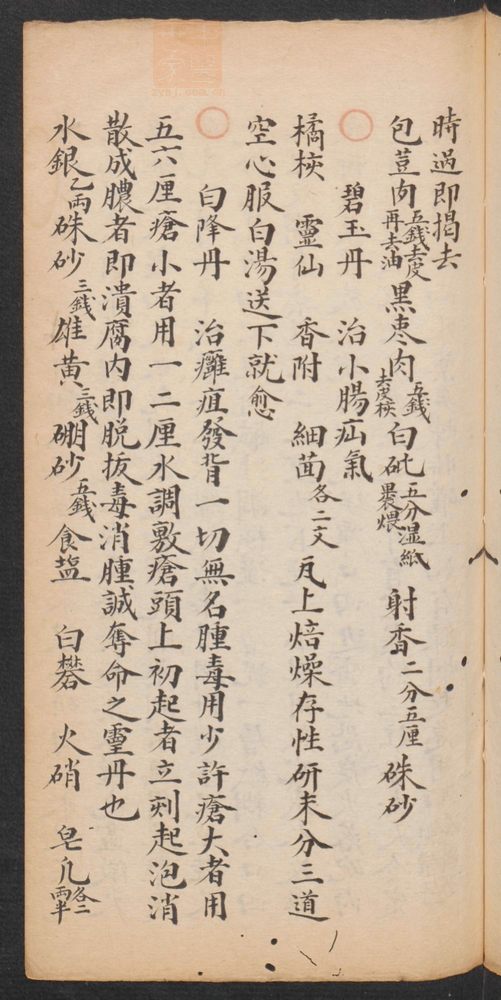 時過即揭去
包荳肉五錢去皮再去油黑枣肉五錢去皮核白砒五分湿紙裹煨 射香二分五厘 硃砂
碧玉丹 治小腸疝氣
橘核 靈仙 香附 細茴各二文瓦上焙燥存性研末分三道
空心服白湯送下就愈
白降丹 治癰疽發背一切無名腫毒用少許瘡大者用
五六厘瘡小者用一二厘水調敷瘡頭上初起者立刻起泡消
散成膿者即潰腐內即脱拔毒消腫誠奪命之靈丹也
水銀乙両硃砂三錢雄黄三錢硼砂五錢食盐 白礬 火硝 皂凡各二両半